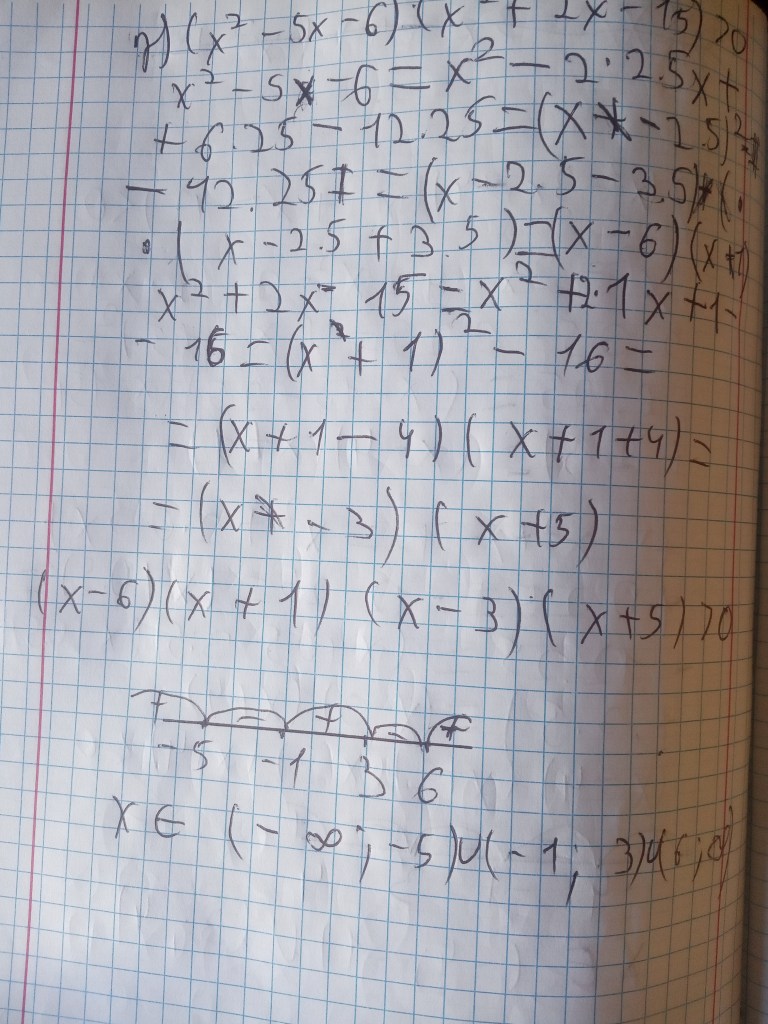 г) (x² - 5x - 6) (x² + 2x - 15) > 0
x² - 5x - 6 = x² - 2·2.5x +
+ 6.25 - 12.25 = (x - 2.5)² -
- 12.25 = (x - 2.5 - 3.5) (·
· ( x - 2.5 + 3.5 ) = (x - 6) (x+1)
x² + 2x - 15 = x² + 2·1x + 1 -
- 16 = (x + 1)² - 16 =
= (x + 1 - 4) ( x + 1 + 4) =
= (x - 3) ( x + 5)
(x - 6) (x + 1) (x - 3) ( x + 5) > 0
+ - + - +
-5 -1 3 6
x ∈ (- ∞; -5) ∪ (- 1; 3) ∪ (6; ∞)